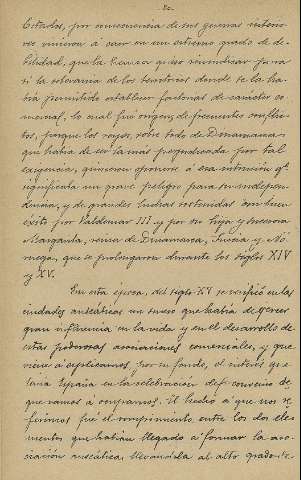 - 80 -
Estados, por consecuencia de sus guerras interio-
res vinieron á caer en un extremo grado de de-
bilidad, que la Hansa quiso reivindicar para
sí la soberanía de los territorios donde se la ha-
bía permitido establecer factorías de carácter co-
mercial, lo cual fué origen de frecuentes conflic-
tos, porque los reyes, sobre todo de Dinamarca,
que había de ser la más perjudicada por tal
exigencia, quisieron oponerse á esa intención qe.
significaba un grave peligro para su indepen-
dencia, y de grandes luchas sostenidas con buen
éxito por Valdemar III y por su hija y sucesora
Margarita, reina de Dinamarca, Suecia y No-
ruega, que se prolongaron durante los siglos XIV
y XV.
En esta época, del siglo XV se verificó en las
ciudades anseáticas un suceso que había de ejercer
gran influencia en la vida y en el desarrollo de
estas poderosas asociaciones comerciales, y que
viene á explicarnos, por su fondo, el interés que
tenía España en la celebración del convenio de
que vamos á ocuparnos. El hecho á que nos re-
ferimos fué el rompimiento entre los dos ele-
mentos que habían llegado á formar la aso-
ciación anseática llevándola al alto grado de